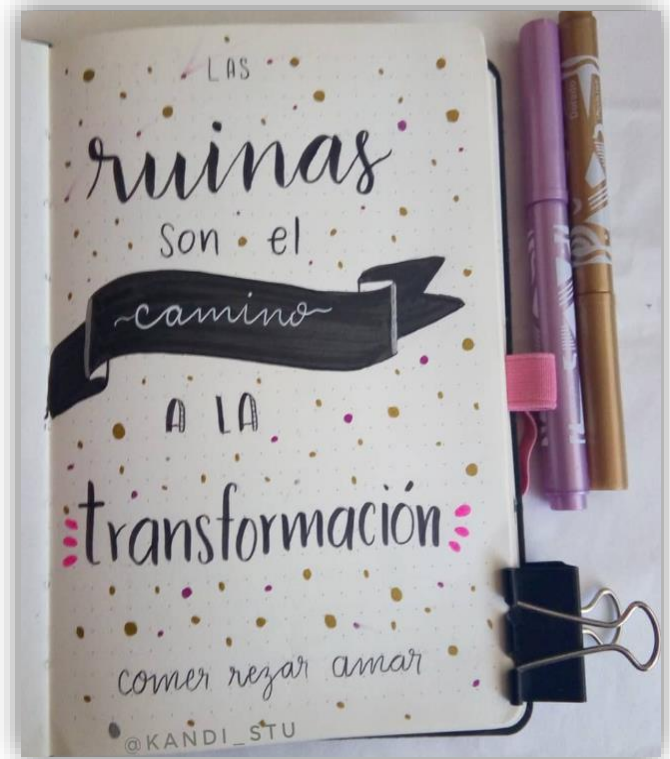 LAS
ruinas
son el
~camino~
A LA
transformación
comer rezar amar
@KANDI_STU